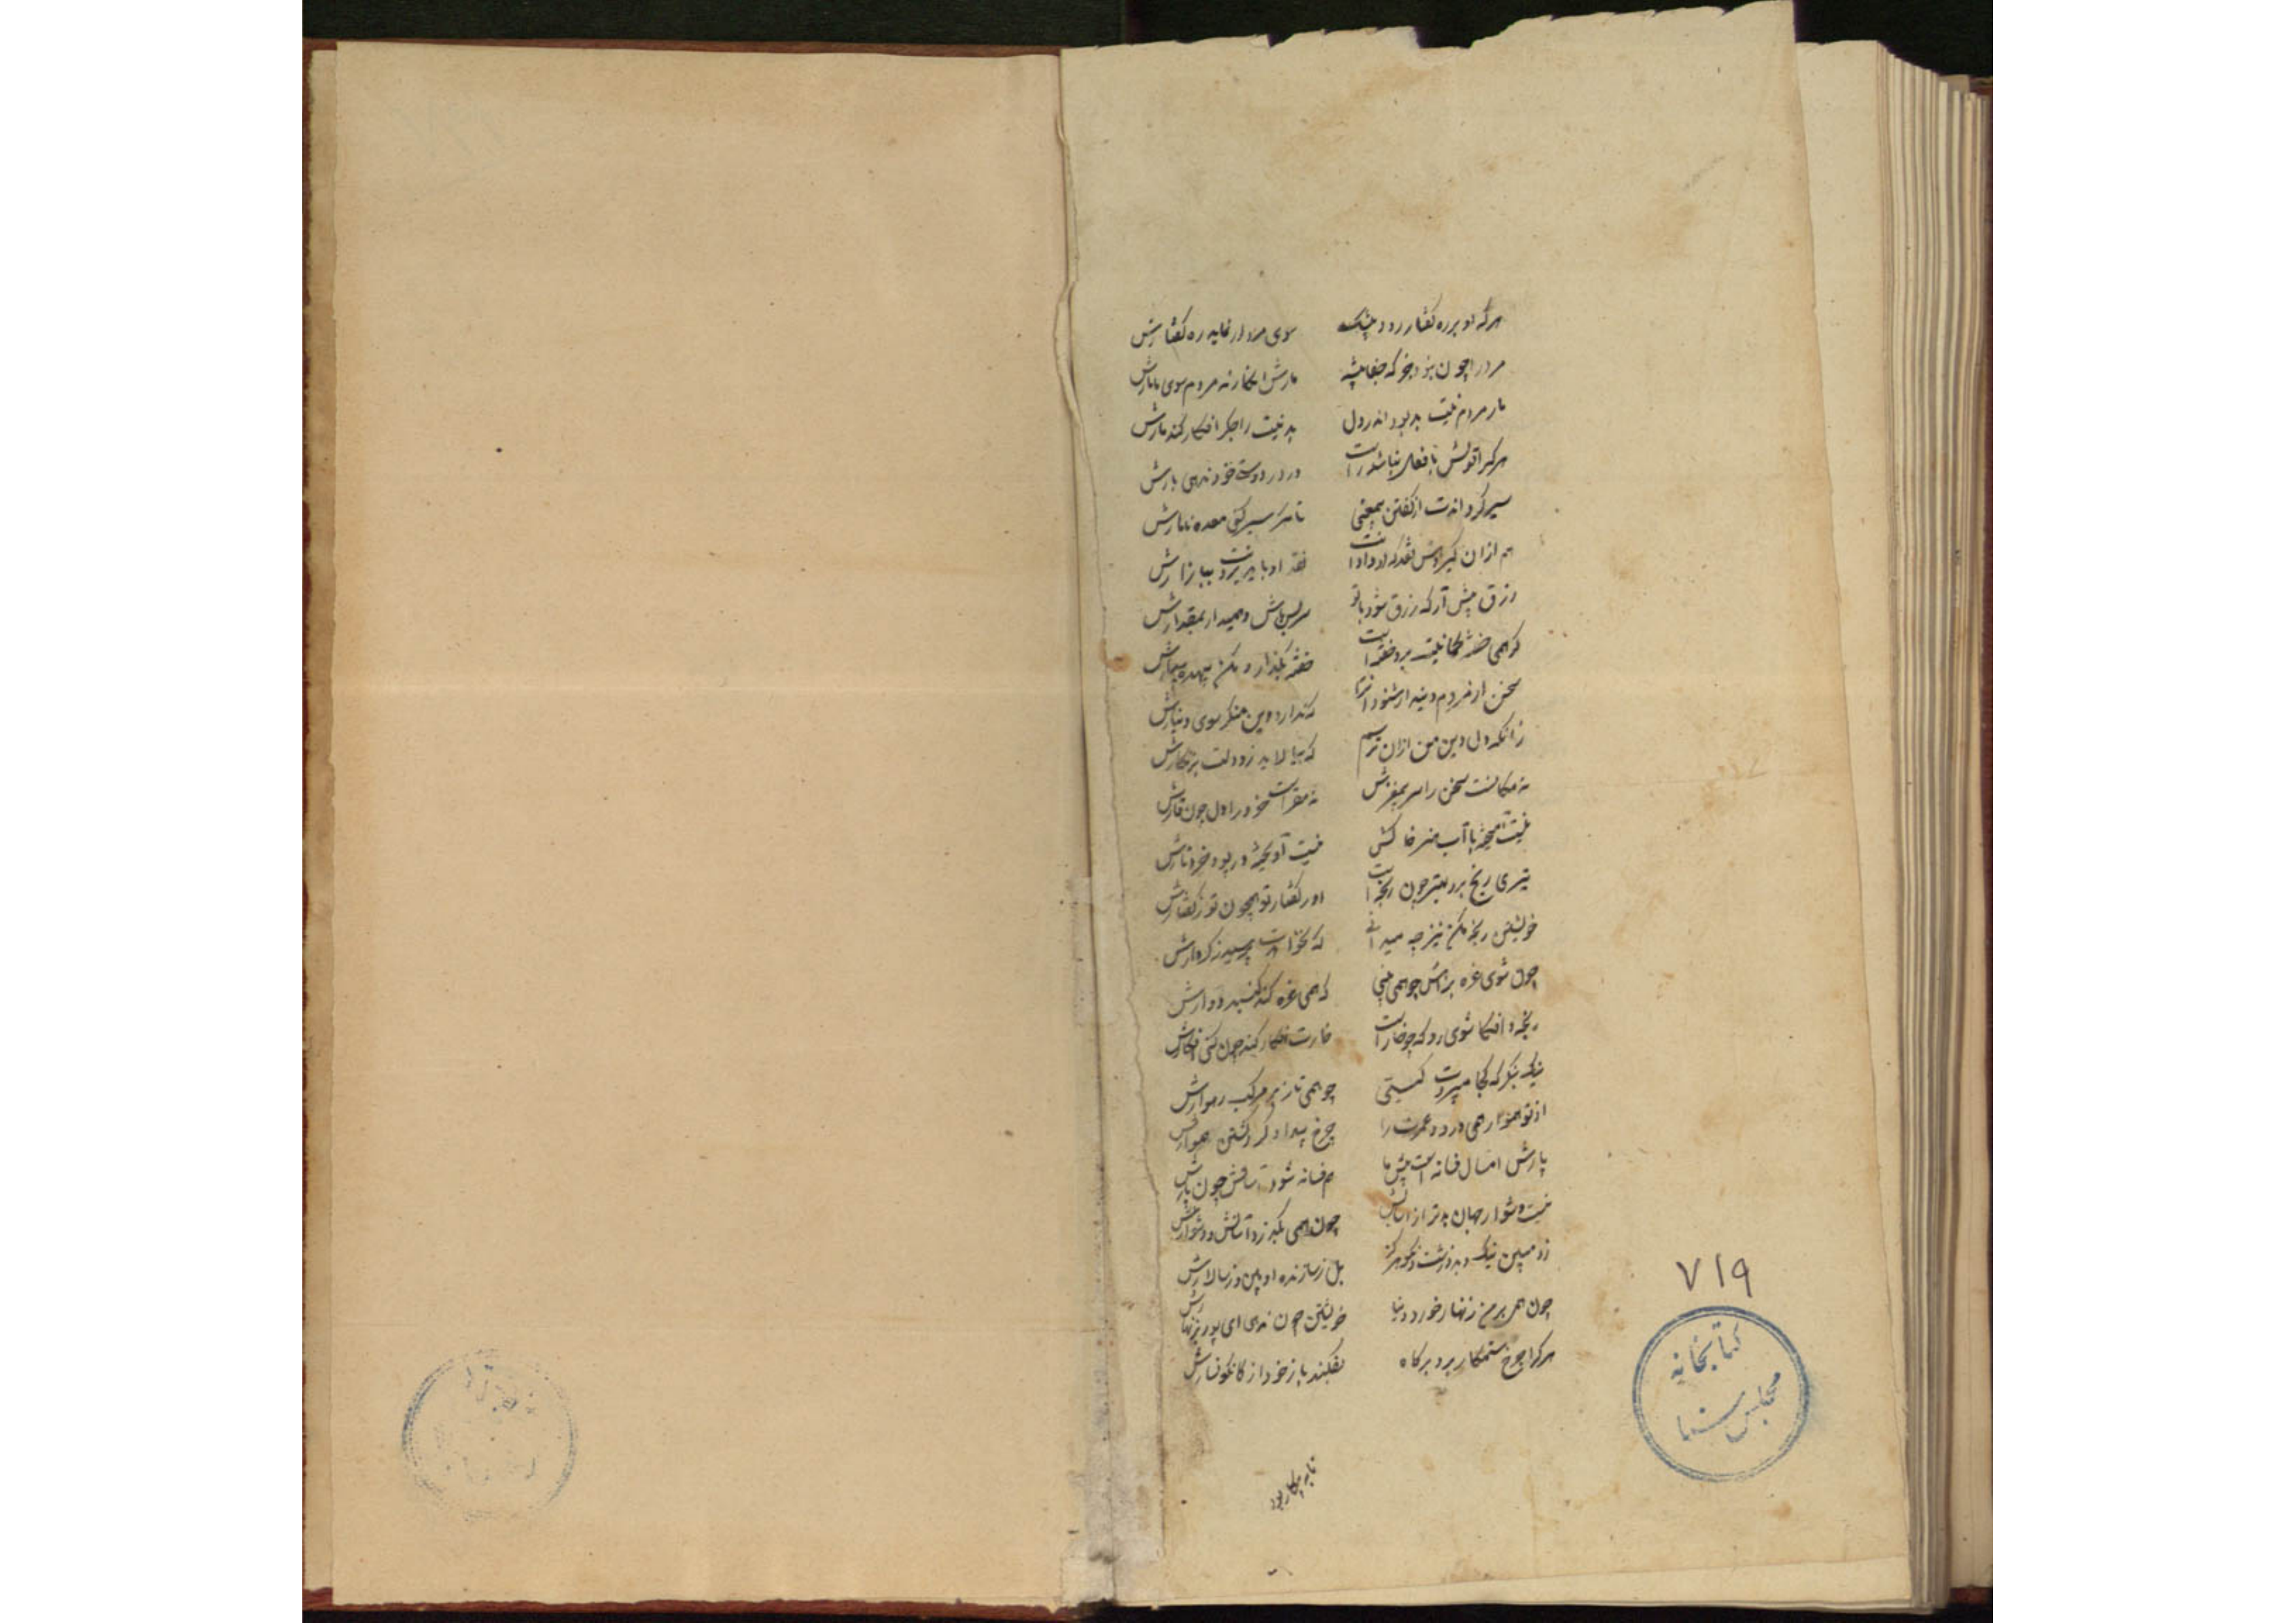 هرکه او بر ره کفتار رود بیشک سوی مردار نماید ره کفتارش
مرد را چون بنود جز که جفا پیشه مارش انکار نه مردم سوی ما مارش
مار مردم نیت بد بود اندر دل بد نیت را جکر افکار کند مارش
هر کرا قولش با فعل نباشد راست در در دوستی خود ندهی بارش
سیر کرداندت از کفتن بیمعنی تا مکر سیر کنی معده ناهارش
هم از ان کیر دلش نقد که او دادست نقد او با بر بباز ارش
رزق پیش آر که رزق شود با تو سر بسر باش و همیدار بمقدارش
کر همی خفته کمانیت برد خفتست خفته بکذار و مکن بیهده بیدارش
سخن از مردم دیندار شنو وانرا که ندارد دین منکر سوی دینارش
زانکه دل دین من از ان ترسم که بیالاید زو دلت بزنکارش
نه مکانست سخن را سر بیمغزش نه مقرست خرد را دل چون قارش
نیست آمیخته با آب هنر خاکش نیست آویخته در پود خرد تارش
تیزی رنج برد بیشتر چون رنجست او ز کفتار تو همچون تو ز کفتارش
خویشتن رنجه مکن نیز چه میدانی که نخواهدت بپرسید ز کردارش
چون شوی غره براتش چو همی بینی که همی غره کند کنبد دوارش
رنجه و افکار شوی زو که چو خارست خارت افکار کند چون کنی افکارش
نیک بنکر که کجا میبردت کیتی چو همی تازد بر مرکب رهوارش
از تو هموار همی دزدد عمرت را چرخ بیداد کر و کشتن هموارش
پارش امسال فسانه است پیش ما هم فسانه شود امسالش چون پارش
نیست دشوار جهان بدتر از آسانش چون همی بکذرد آسانش و دشوارش
زو مبین نیک و بد و زشت و نکو هرکز بل ز سازنده او بین و ز سالارش
چون همی بر من زنهار خورد دنیا خویشتن چون ندهی ای پور بزنهارش
هر کرا چرخ ستمکار برد بر کاه بفکند باز خود از کاه نکونسارش
۷۱۹
کتابخانه
مجلس شورا